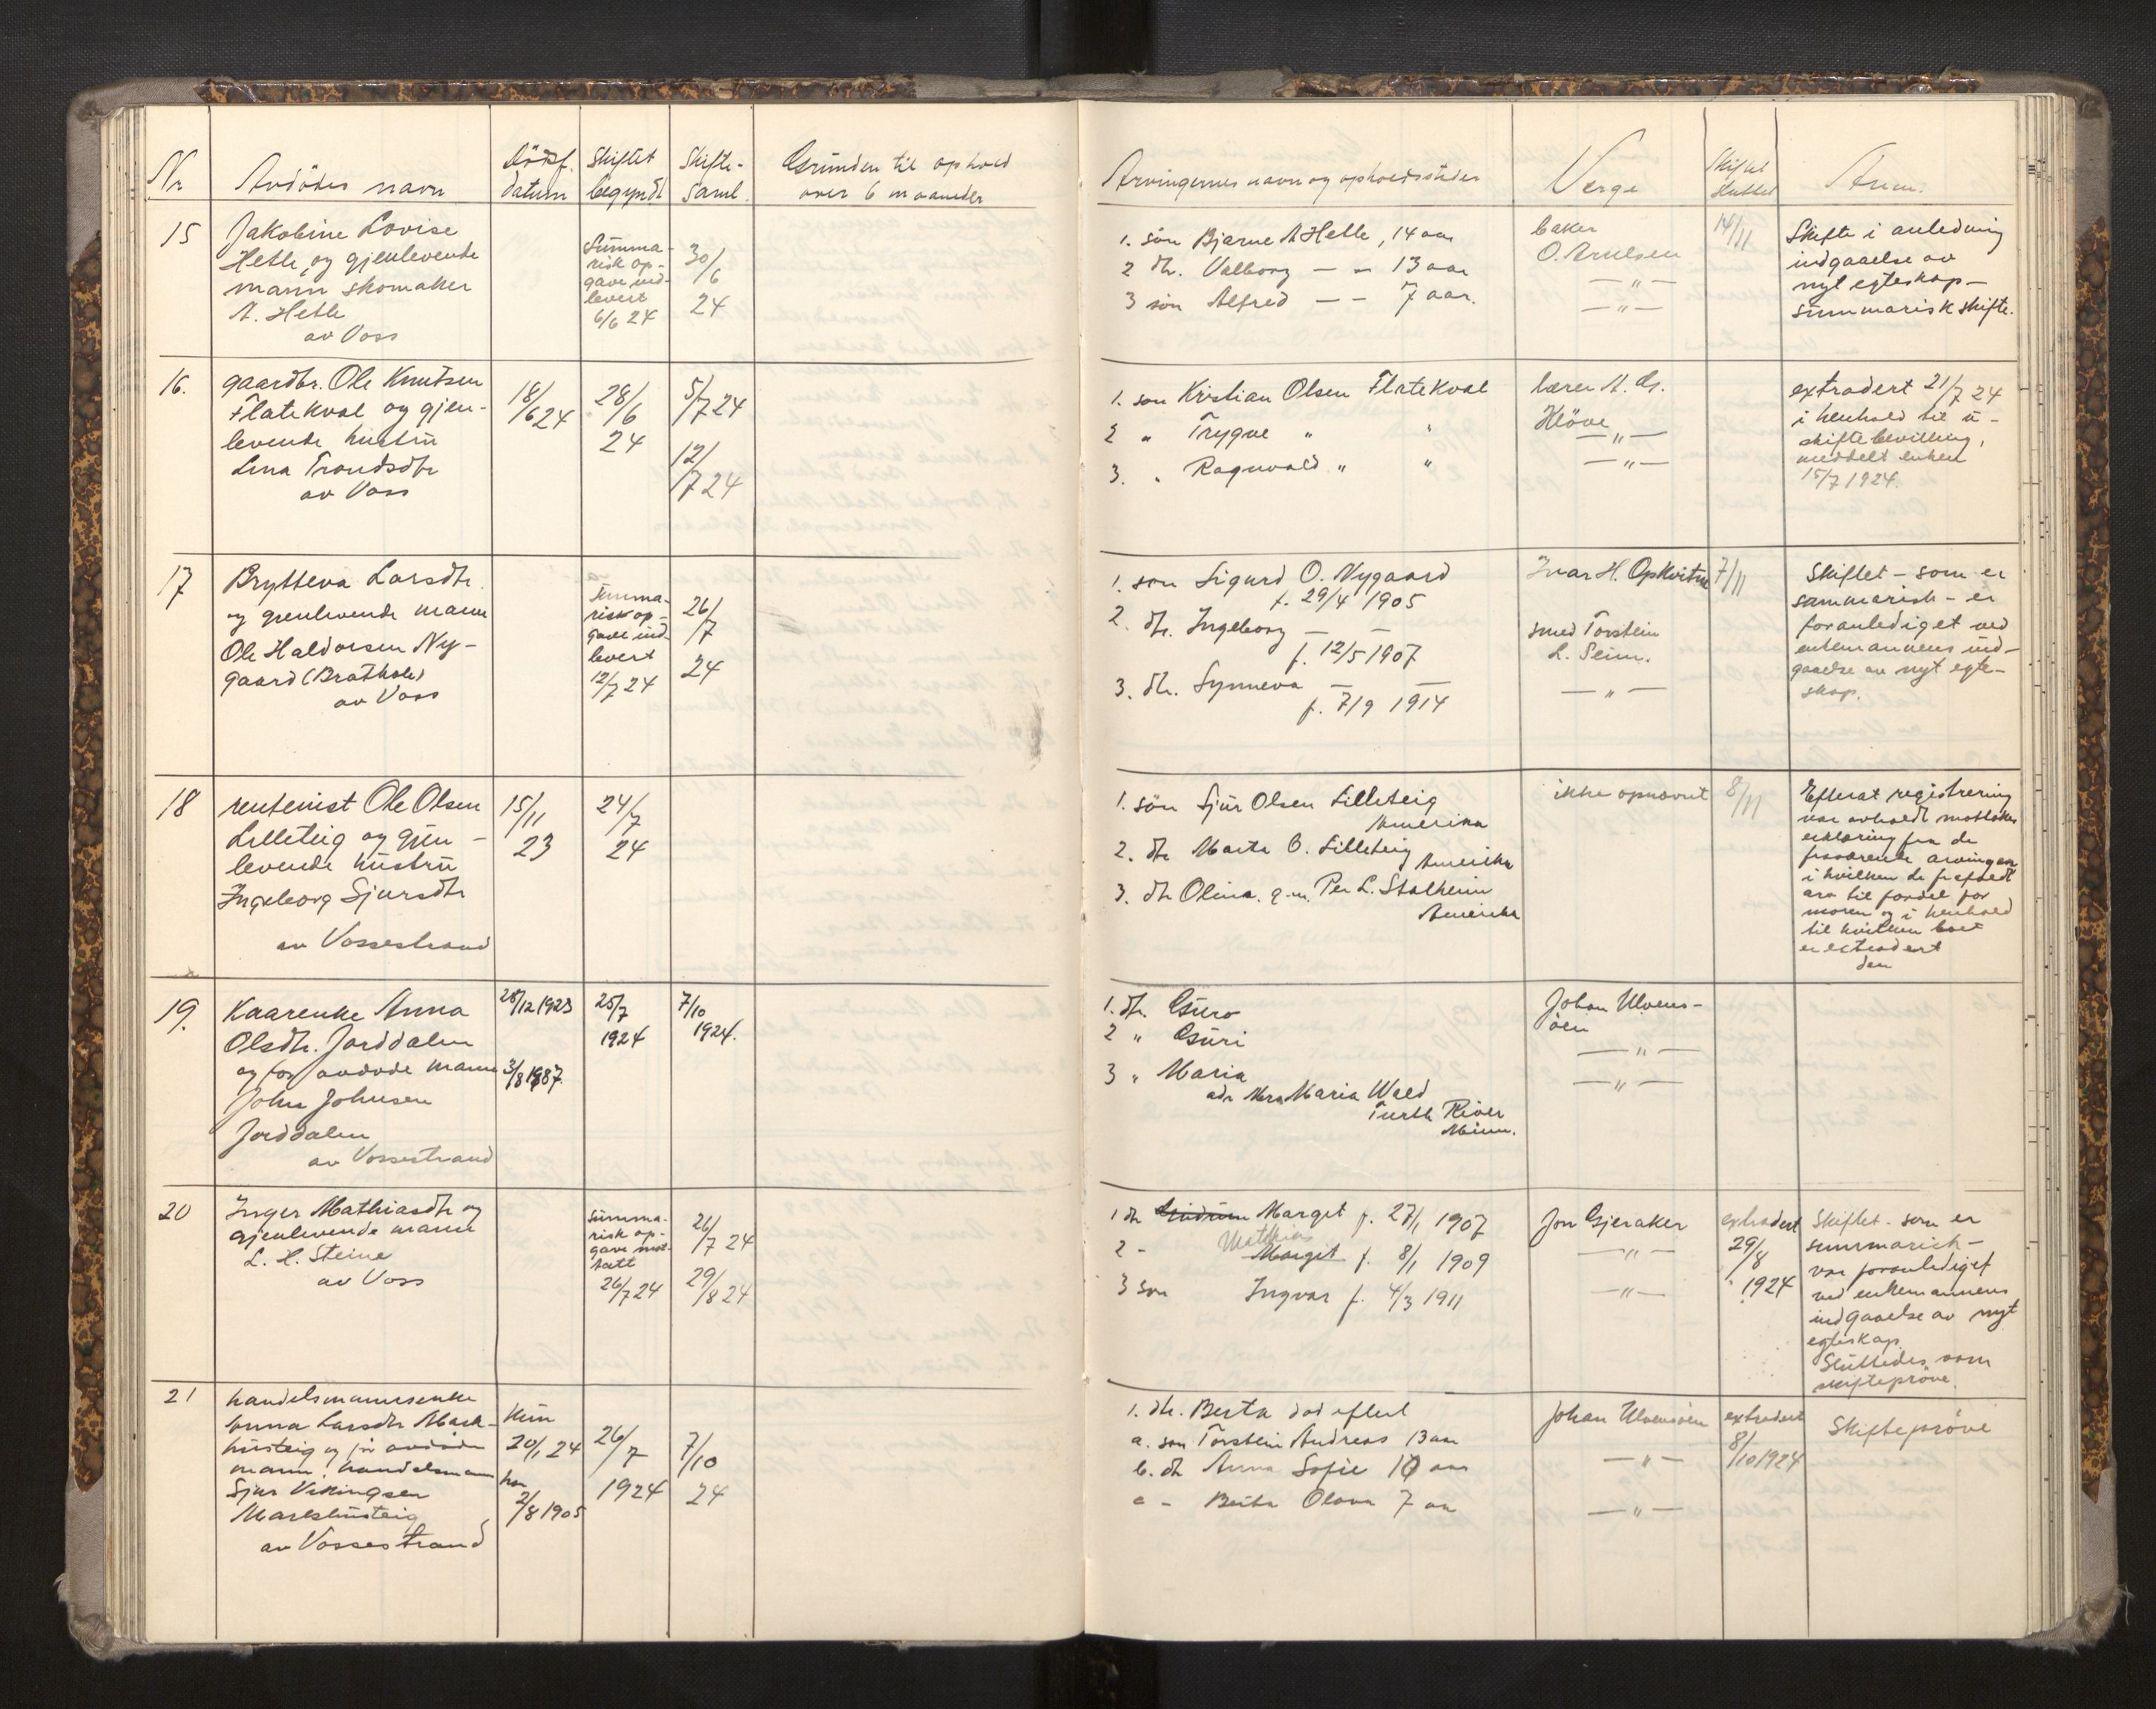 Nr
Avdödes navn
Dödsf. datum
Skiftet begyndt
Skifte-saml.
Grunden til ophold
over 6 maaneder
Arvingernes navn og opholdssteder
Verge
Skiftet sluttet
Anm.
15
Jakobine Lovise
Hetle og gjenlevende
mann skomaker
A. Hetle
av Voss
Summa-
risk op-
gave ind-
levert
6/6 24
30/6
24
1. sön Bjarne A Hetle, 14 aar
2 dtr. Valborg — " 13 aar
3 sön Alfred — — 7 aar.
baker
O. Arnesen
— " —
— " —
14/11
Skifte i anledning
indgaaelse av
nyt egteskap —
summarisk skifte.
16.
gaardbr. Ole Knutsen
Flatekval og gjen-
levende hustru
Lina Trondsdtr
av Voss
18/6 24
28/6
24
5/7 24
12/7 24
1. son Kristian Olsen Flatekval
2 " Trygve " "
3. " Ragnvald " "
lærer A. G.
Höve
— " —
— " —
extradert 21/7 24
i henhold til u-
skiftebevilling,
meddelt enken
15/7 1924.
17
Brytteva Larsdtr.
og gjenlevende mann
Ole Haldorsen Ny-
gaard (Brathole)
av Voss
Summa-
risk op-
gave ind-
levert
12/7 24
26/7
24
1. son Sigurd O. Nygaard
f. 29/4 1905
2. dtr. Ingeborg — —
f. 12/5 1907
3. dtr. Synneva — —
f. 7/9 1914
Ivar H. Opkvitne
smed Torstein
L. Seim.
— " —
7/11
Skiftet — som er
summarisk — er
foranlediget ved
enkemannens ind-
gaaelse av nyt egte-
skap.
18
rentenist Ole Olsen
Lilleteig og gjen-
levende hustru
Ingeborg Sjursdtr
av Vossestrand
15/11
23
24/7
24
1. sön Sjur Olsen Lilleteig
Amerika
2. dtr Marta O. Lilleteig
Amerika
3. dtr Olina g.m. Per L. Stalheim
Amerika
ikke opnævnt
8/11
Efterat registrering
var avholdt mottokes
erklæring fra de
fraværende arvinger
i hvilken de frafaldt
arv til fordel for
moren og i henhold
til hvilken boet
er extradert
den
19.
Kaarenke Anna
Olsdtr. Jorddalen
og för avdöde mann
John Johnsen
Jorddalen
av Vossestrand
28/12 1923
3/8 1887.
25/7
1924
7/10
1924.
1. dtr. Guro
2 " Guri
3 " Maria
adr Mrs Maria Wald
Turtle River
Minn.
Johan Ulvens-
öen
— " —
— " —
20
Inger Mathiasdtr og
gjenlevende mann
L. H. Steine
av Voss
Summa-
risk op-
gave mot-
tatt
26/7 24
26/7 24
29/8 24
1 dtr Margit f. 27/1 1907
Matthias
2 - Margit f. 8/1 1909
3 son Ingvar f. 4/3 1911
Jon Gjeraker
— " —
— " —
extradert
29/8
1924
Skiftet - som er
summarisk —
var foranlediget
ved enkemannens
indgaaelse av nyt
egteskap.
Sluttedes som
skifteprøve.
21
handelsmannsenke
Anna Larsdtr Mark-
husteig og för avdöde
mann, handelsmann
Sjur Vikingsen
Markhusteig
av Vossestrand
hun
20/1 24
han
2/8 1905
26/7
1924
7/10
24
1. dtr. Berta död efterl
a. son Torstein Andreas 13 aar
b. dtr Anna Sofie 10 aar
c - Berta Olava 7 aar
Johan Ulvensöen
— " —
— " —
extradert
8/10 1924
Skifteprøve